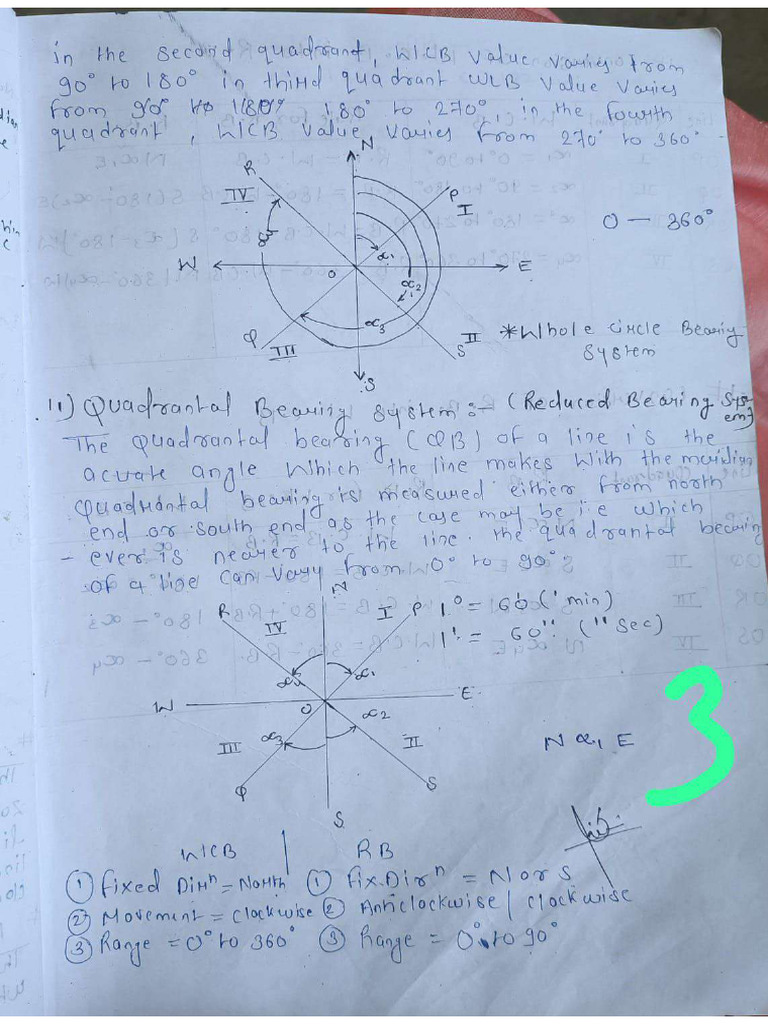 in the second quadrant, WCB value varies from
90° to 180° in third quadrant WCB value varies
from 90° to 180° 180° to 270°, in the fourth
quadrant, WCB value varies from 270° to 360°
N
R
P
IV
I
0 — 360°
α1
W
E
O
α2
α3
Q
III
II
S
S
*Whole circle Bearing
system
11) Quadrantal Bearing system:- (Reduced Bearing Syst
em)
The quadrantal bearing (QB) of a line is the
acuate angle which the line makes with the meridian
quadrantal bearing is measured either from north
end or south end as the case may be i.e which
- ever is nearer to the line. the quadrantal bearing
of a line can vary from 0° to 90°
N
R
P
IV
I
1° = 60' ('min)
1' = 60" ("Sec)
α4
α1
W
E
O
α2
α3
III
II
N α1 E
Q
S
S
3
WCB | RB
① Fixed Dirⁿ = North ① Fix.Dirⁿ = N or S
② Movement = clockwise ② Anticlockwise / clockwise
③ Range = 0° to 360° ③ Range = 0° to 90°